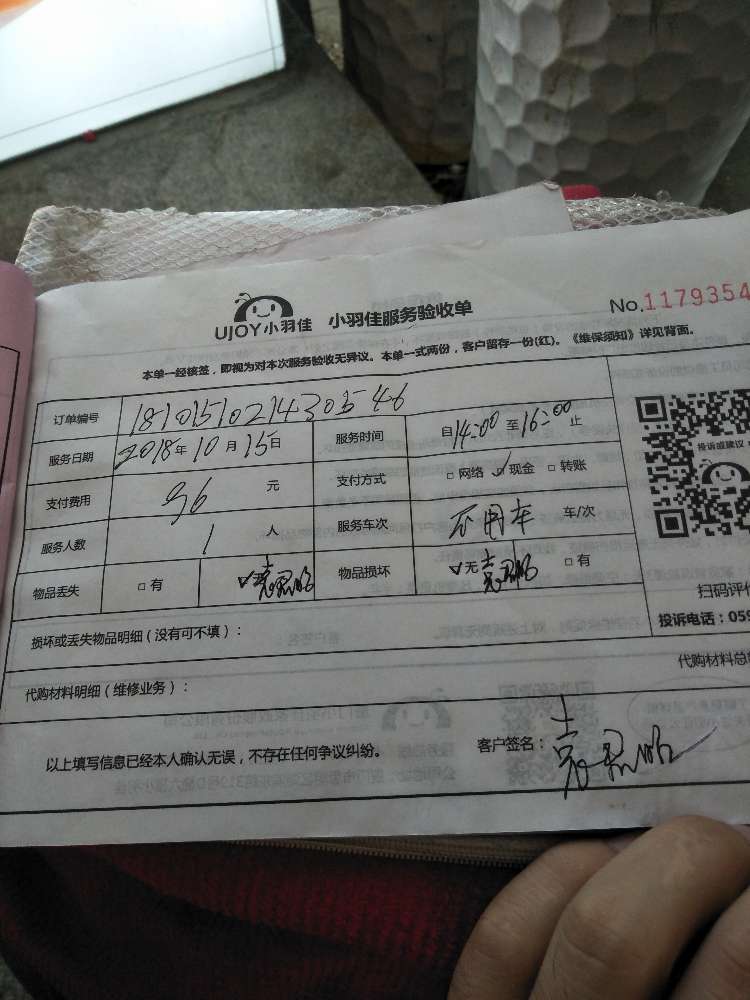 UJOY小羽佳 小羽佳服务验收单 No.1179354
本单一经核签，即视为对本次服务验收无异议。本单一式两份，客户留存一份(红)。《维保须知》详见背面。
订单编号 18101510214303546
服务日期 2018年10月15日 服务时间 自14:00至16:00止
支付费用 96元 支付方式 □网络 ✓现金 □转账
服务人数 1人 服务车次 不用车 车/次
物品丢失 □有 ✓无 物品损坏 ✓无 □有
损坏或丢失物品明细（没有可不填）：
代购材料明细（维修业务）： 代购材料总
以上填写信息已经本人确认无误，不存在任何争议纠纷。 客户签名：
投诉或建议
扫码评
投诉电话：059